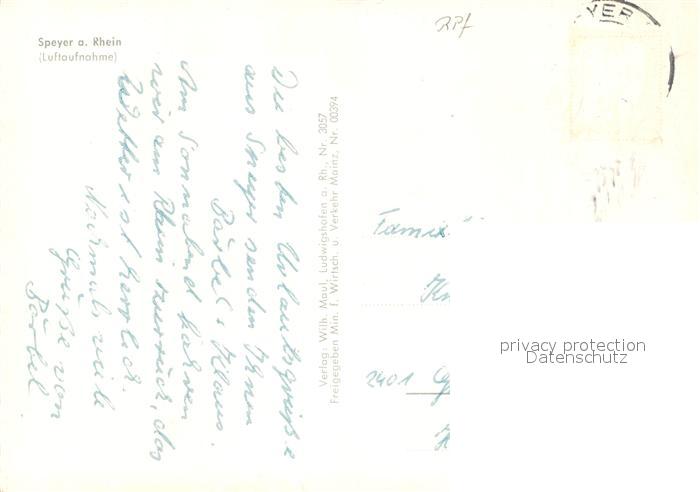 Speyer a. Rhein
(Luftaufnahme)
RPf
YER
Die besten Urlaubsgrüße
aus Speyer senden Ihnen
Bärbel + Klaus.
Am Sonnabend fahren
wir am Rhein zurück, das
Wetter ist herrlich.
Nochmals viele
Grüße von
Bärbel.
Verlag: Wilh. Maul, Ludwigshafen a. Rh., Nr. 3057
Freigegeben Min. f. Wirtsch. u. Verkehr Mainz, Nr. 00394
Famil
Kn
2401 G
privacy protection
Datenschutz